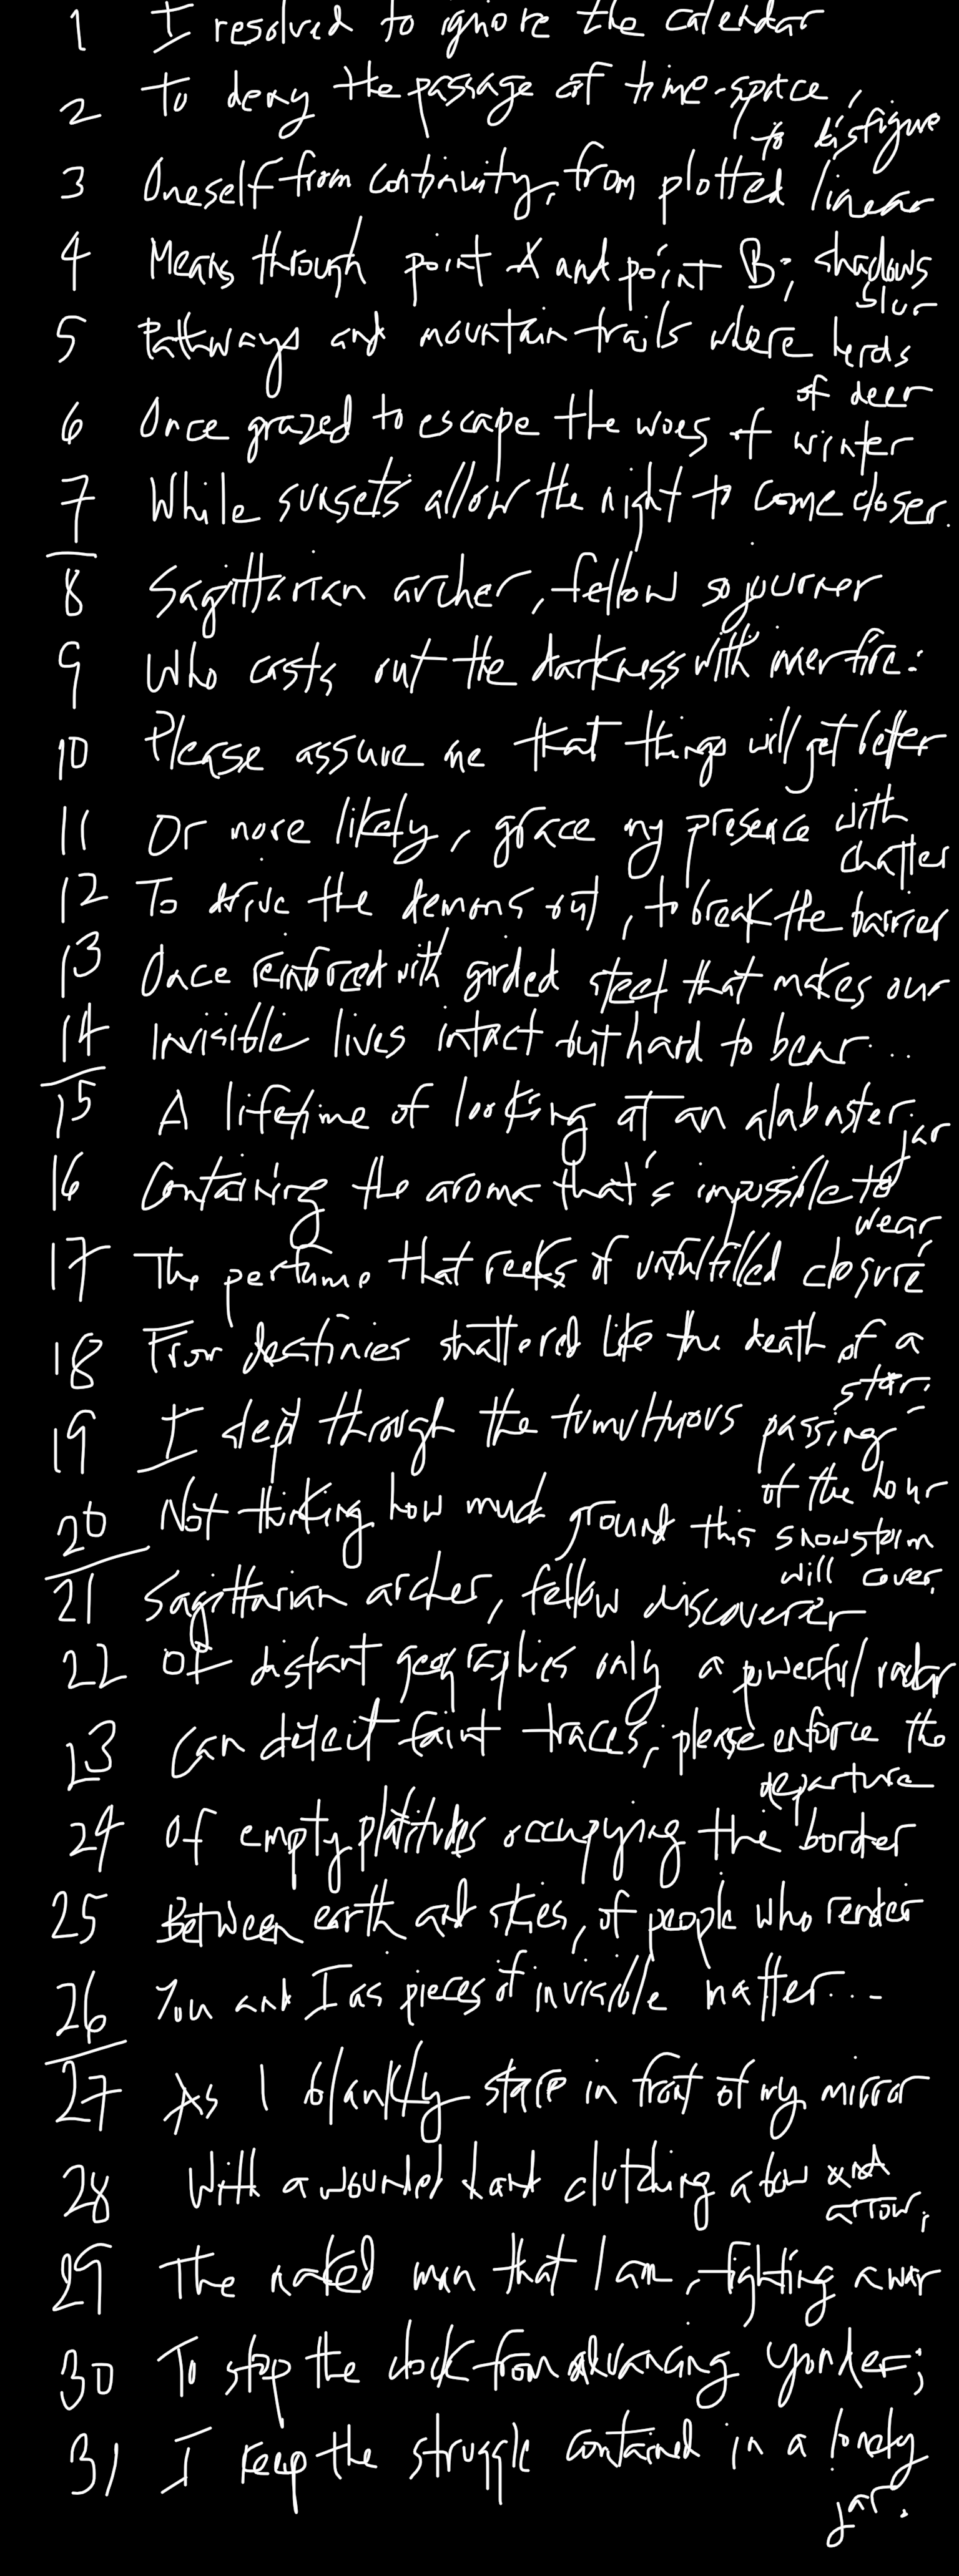 1 I resolved to ignore the calendar
2 To deny the passage of time-space, to disfigure
3 Oneself from continuity, from plotted linear
4 Means through point A and point B; shadows blur
5 Pathways and mountain trails where herds of deer
6 Once grazed to escape the woes of winter
7 While sunsets allow the night to come closer.
8 Sagittarian archer, fellow sojourner
9 Who casts out the darkness with inner fire:
10 Please assure me that things will get better
11 Or more likely, grace my presence with chatter
12 To drive the demons out, to break the barrier
13 Once reinforced with girded steel that makes our
14 Invisible lives intact but hard to bear...
15 A lifetime of looking at an alabaster jar
16 Containing the aroma that's impossible to wear
17 The perfume that reeks of unfulfilled closure
18 From destinies shattered like the death of a star.
19 I slept through the tumultuous passing of the hour
20 Not thinking how much ground this snowstorm will cover.
21 Sagittarian archer, fellow discoverer
22 Of distant geographies only a powerful radar
23 Can detect faint traces, please enforce the departure
24 Of empty platitudes occupying the border
25 Between earth and skies, of people who render
26 You and I as pieces of invisible matter...
27 As I blankly stare in front of my mirror
28 With a wounded hand clutching a bow and arrow,
29 The naked man that I am, fighting a war
30 To stop the clock from advancing yonder;
31 I keep the struggle contained in a lonely jar.